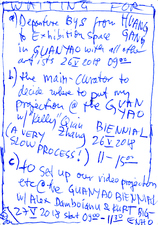 WAITING FOR
a) Departure BUS from HUANG GANG
to Exhibition Space
in GUANYAO with all other
artists 26 V 2018 09:00
b) the main-curator to
decide where to put my
projection @ the GUAN YAO
w/ "Kelly" Qian Zhang BIENNIAL
(A VERY 26 V 2018
SLOW PROCESS!) 11-15
c) to set up our video projection
etc @ the GUANYAO BIENNIAL
w/ Alex Damboianu & KURT BIG-
27 V 2018 start 09:00-11:30 ENHO